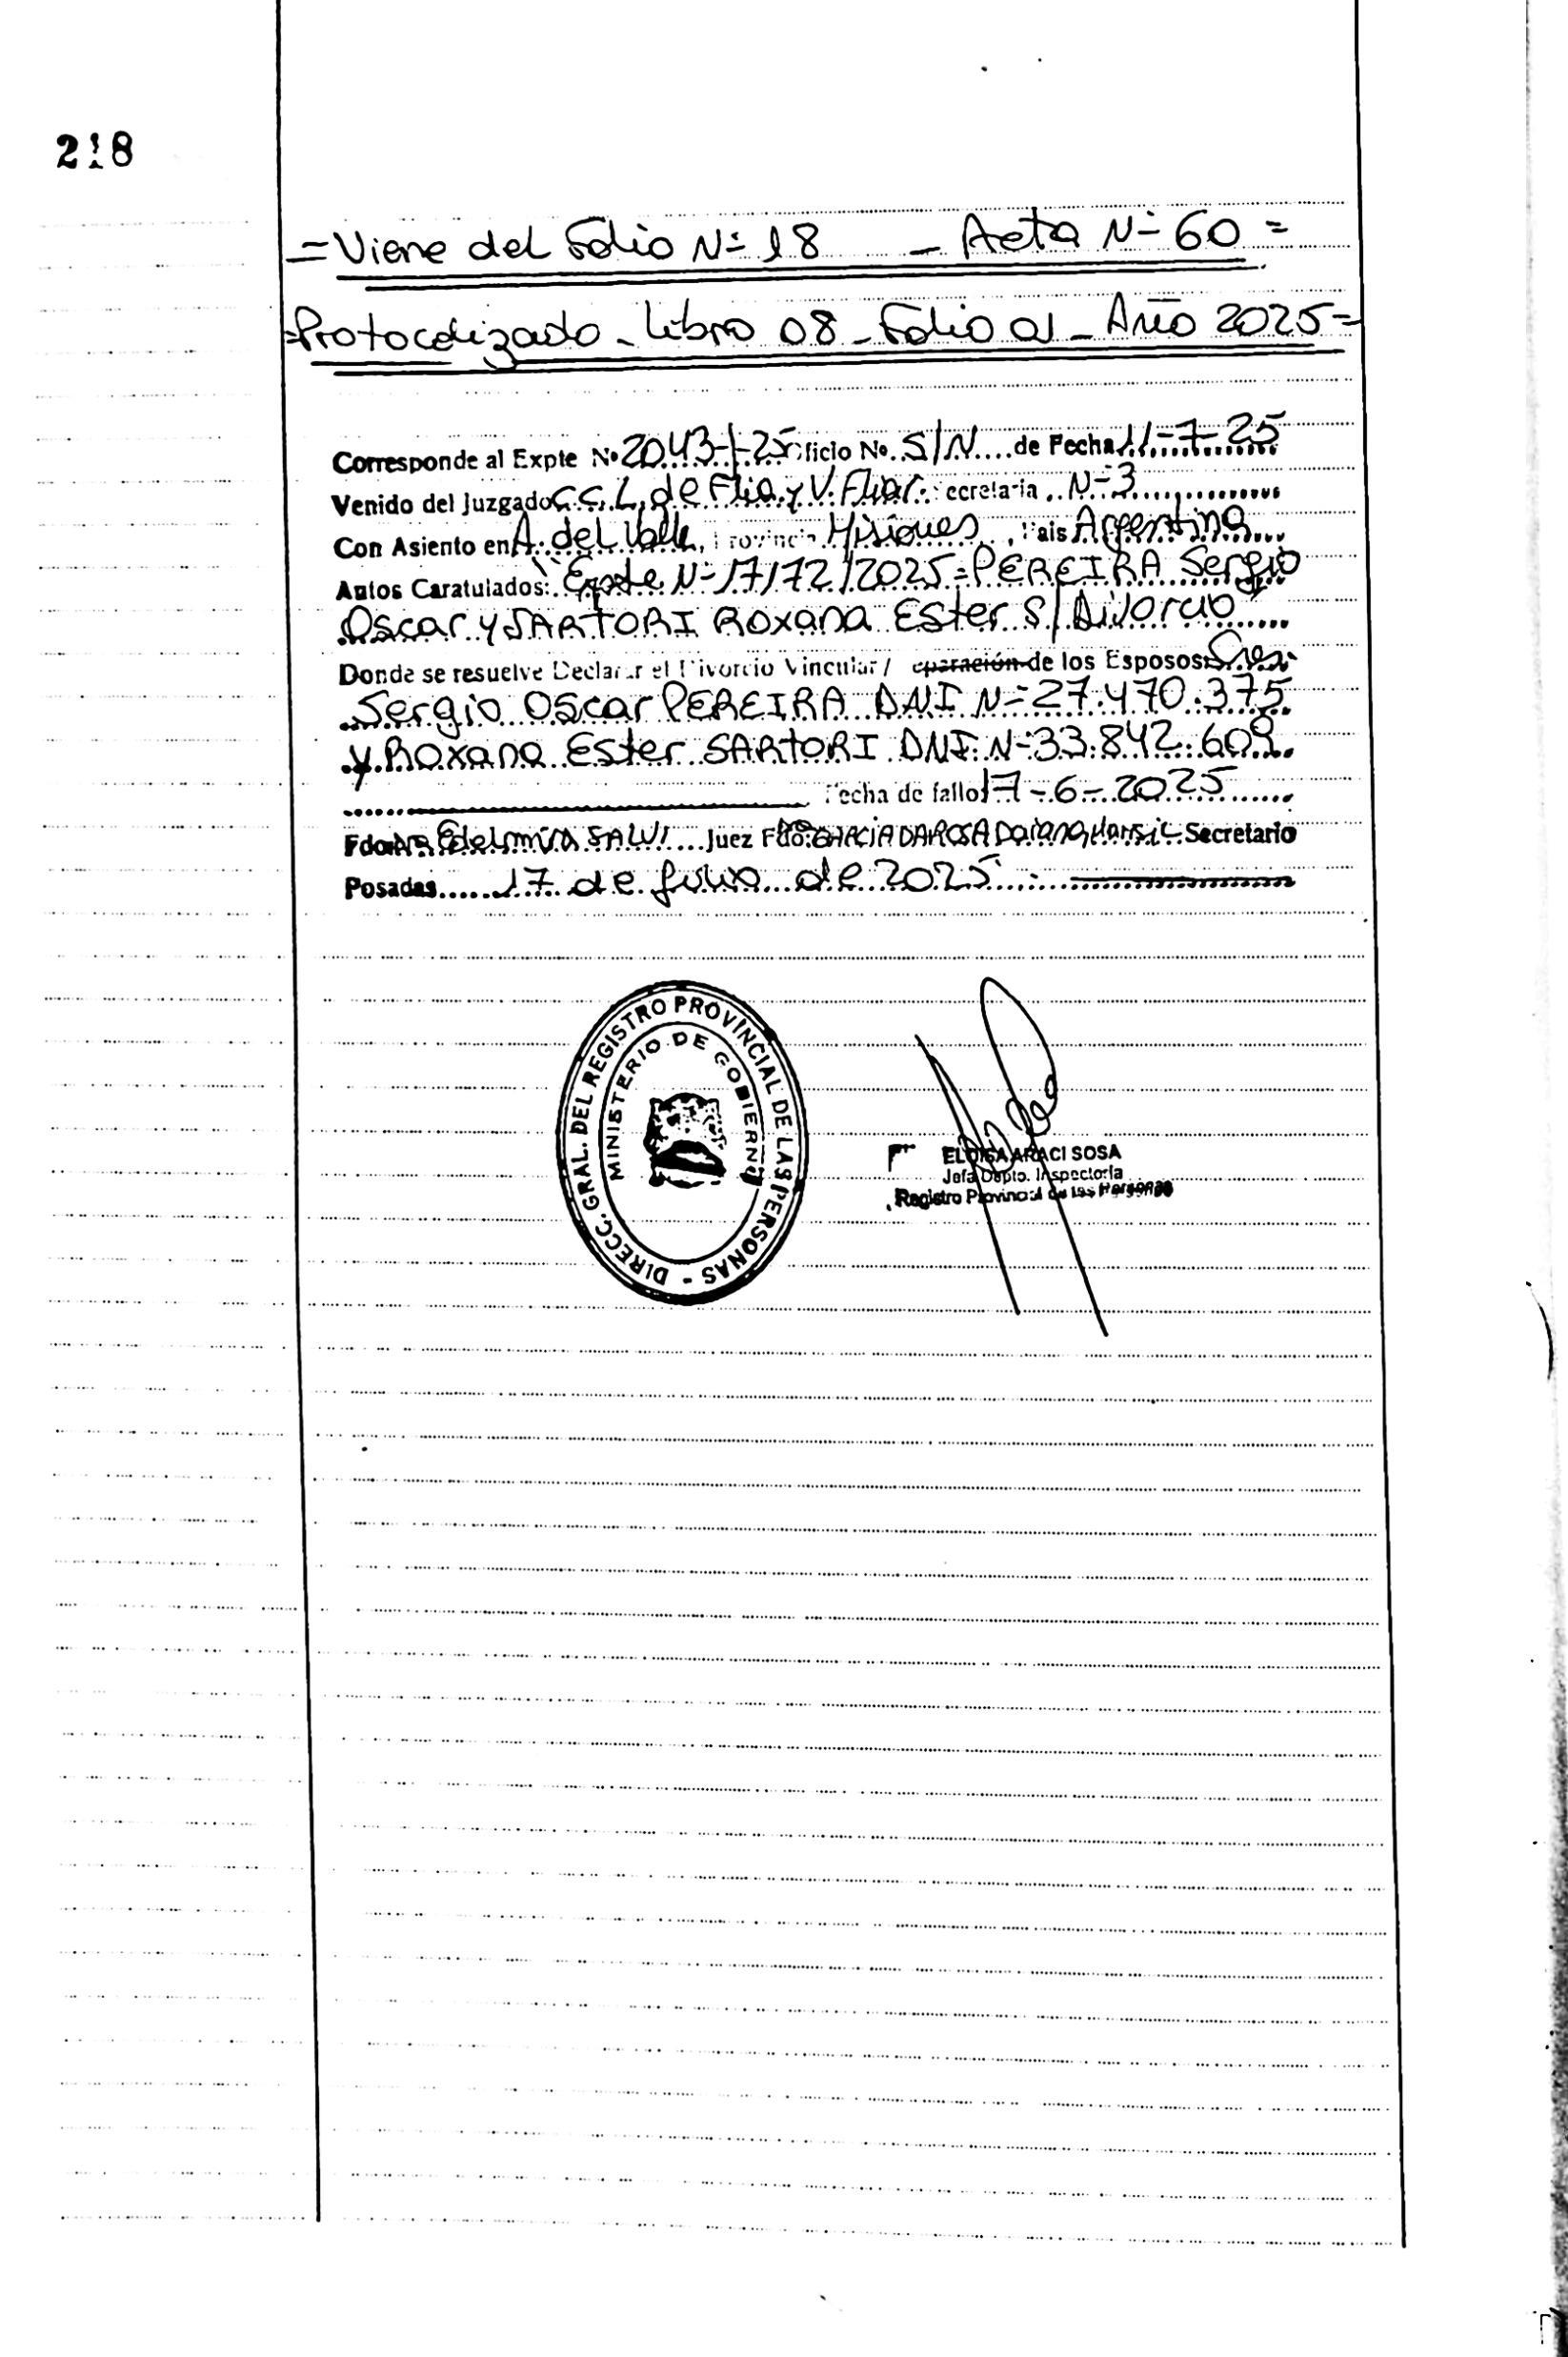 218
= Viene del Folio N=18 - Acta N=60 =
=Protocolizado - Libro 08 - Folio 01 - Año 2025=
Corresponde al Expte Nº 2043-/-25 Oficio No. S/N de Fecha 11-7-25
Venido del Juzgado C.C.L. de Flia. y V. Fliar. Secretaria N=3
Con Asiento en A. del Valle, Provincia Misiones, Pais Argentina
Autos Caratulados: "Expte N=17172/2025=PEREIRA Sergio
Oscar y SARTORI Roxana Ester S/Divorcio"
Donde se resuelve Declarar el Divorcio Vincular / eparación de los Esposos:
Sergio Oscar PEREIRA DNI N=27.470.375
y Roxana Ester SARTORI DNI. N=33.842.609.
Fecha de fallo 17-6-2025
Fdo. Edelmira SALVI Juez Fdo. GARCIA DA ROSA Daiana Secretario
Posadas 17 de Julio de 2025
DIRECC. GRAL. DEL REGISTRO PROVINCIAL DE LAS PERSONAS -
MINISTERIO DE GOBIERNO
ELOISA ARACI SOSA
Jefa Depto. Inspectoría
Registro Provincial de las Personas